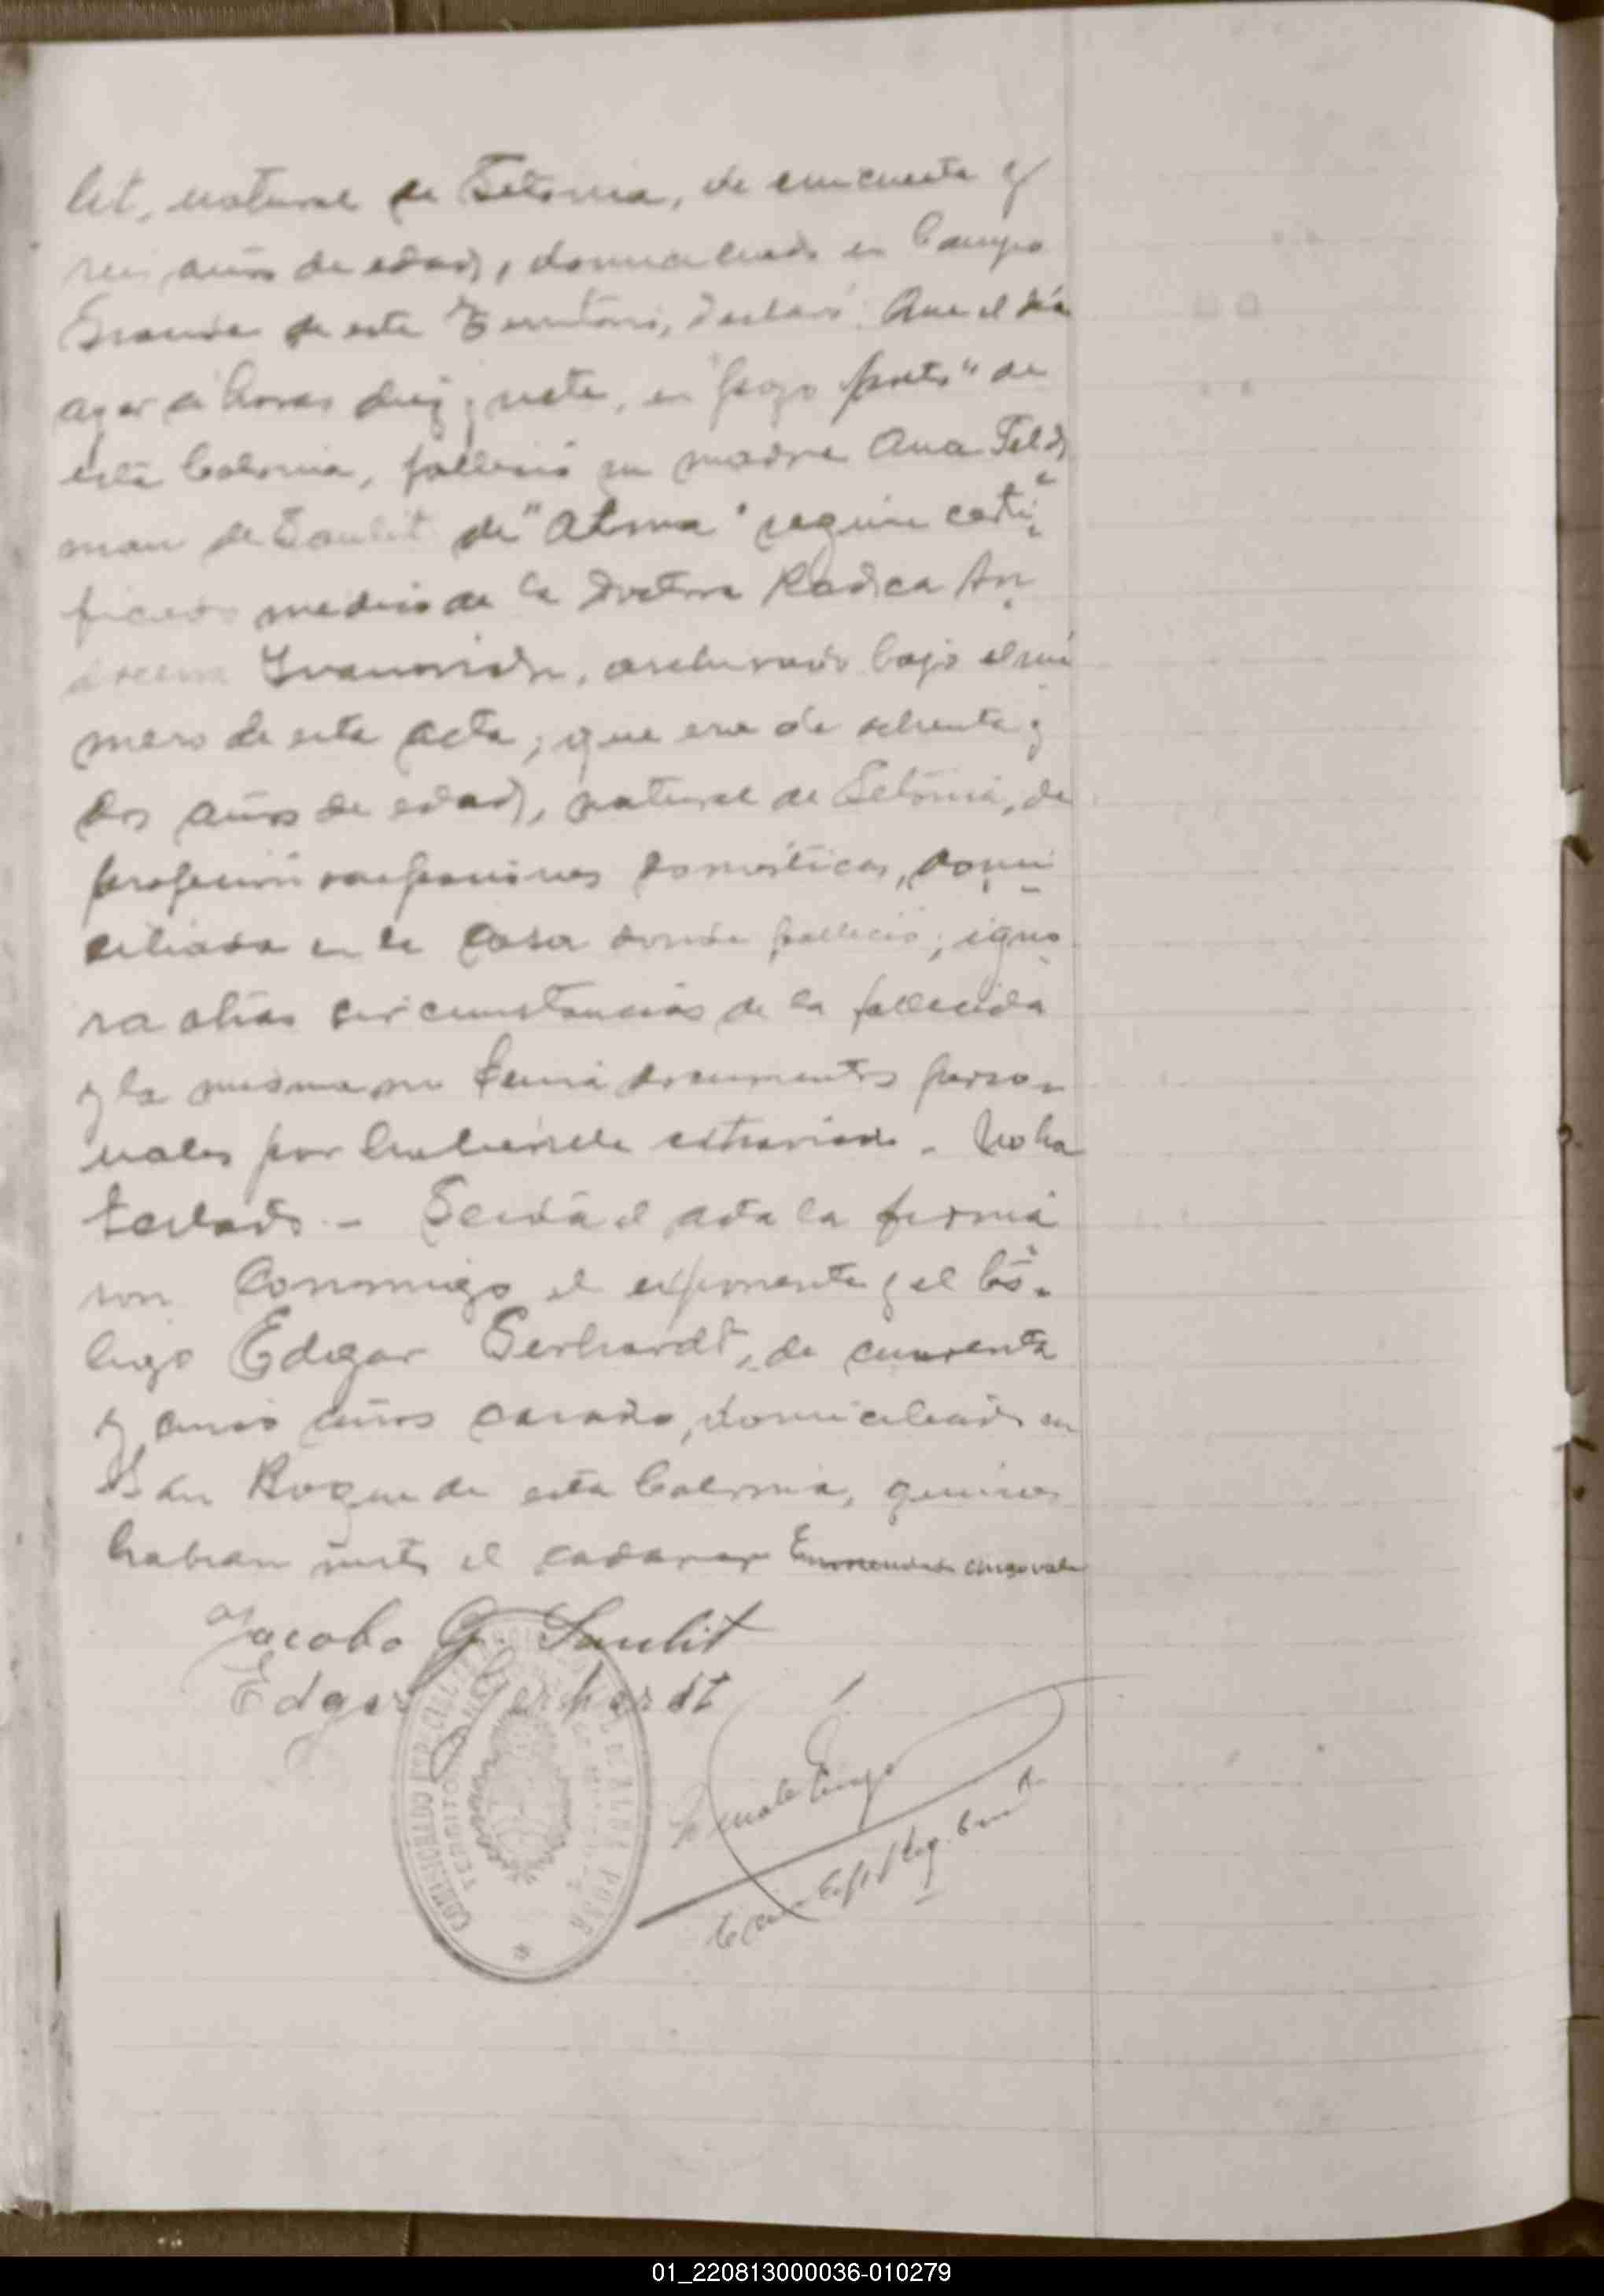 lit, natural de Letonia, de cincuenta y
seis años de edad, domiciliado en Campo
Grande de este Territorio, declaró: Que el día
ayer a horas diez y siete, en "Pozo preto" de
esta Colonia, falleció su madre Ana Feld
man de Saulit de "Asma" segun certi
ficado medico de la Doctora Radica An
Ivanovich, archivado bajo el nú
mero de esta acta; que era de ochenta y
dos años de edad, natural de Letonia, de
profesión ocupaciones domésticas, domi
ciliada en la casa donde falleció; igno
ra otras circunstancias de la fallecida
y la misma no tenia documentos perso-
nales por habersele extraviado. No ha
testado.- Leida el acta la firma
ron conmigo el exponente y el tes-
tigo Edgar Gerhardt, de cuarenta
y cinco años casado, domiciliado en
San Roque de esta Colonia, quienes
habian visto el cadaver Enmendado cinco vale
Jacobo G. Saulit
Edgar Gerhardt